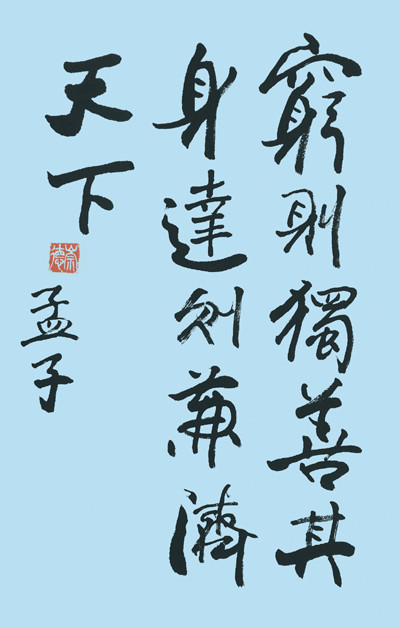 窮則獨善其
身達則兼濟
天下
崇德
孟子